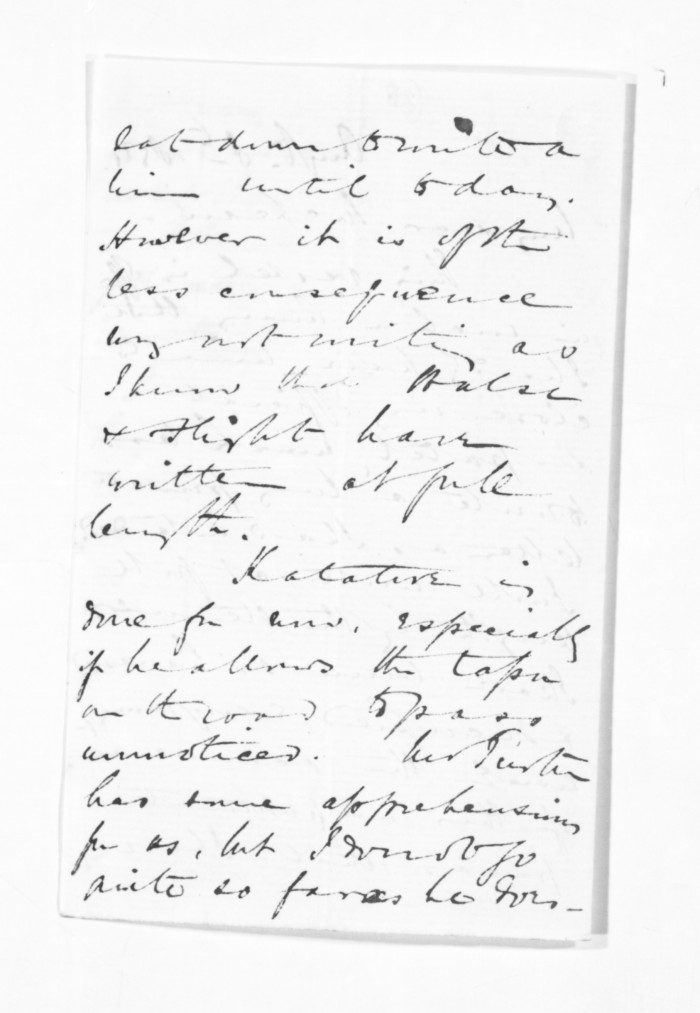 sat down to write a
line until today.
However it is of the
less consequence
my not writing as
I know that Halse
& Flight have
written at full
length.
Katatore is
done for now, especially
if he allows the tapu
on the road to pass
unnoticed. Mr Turton
has some apprehensions
for us, but I do not go
quite so far as he does_